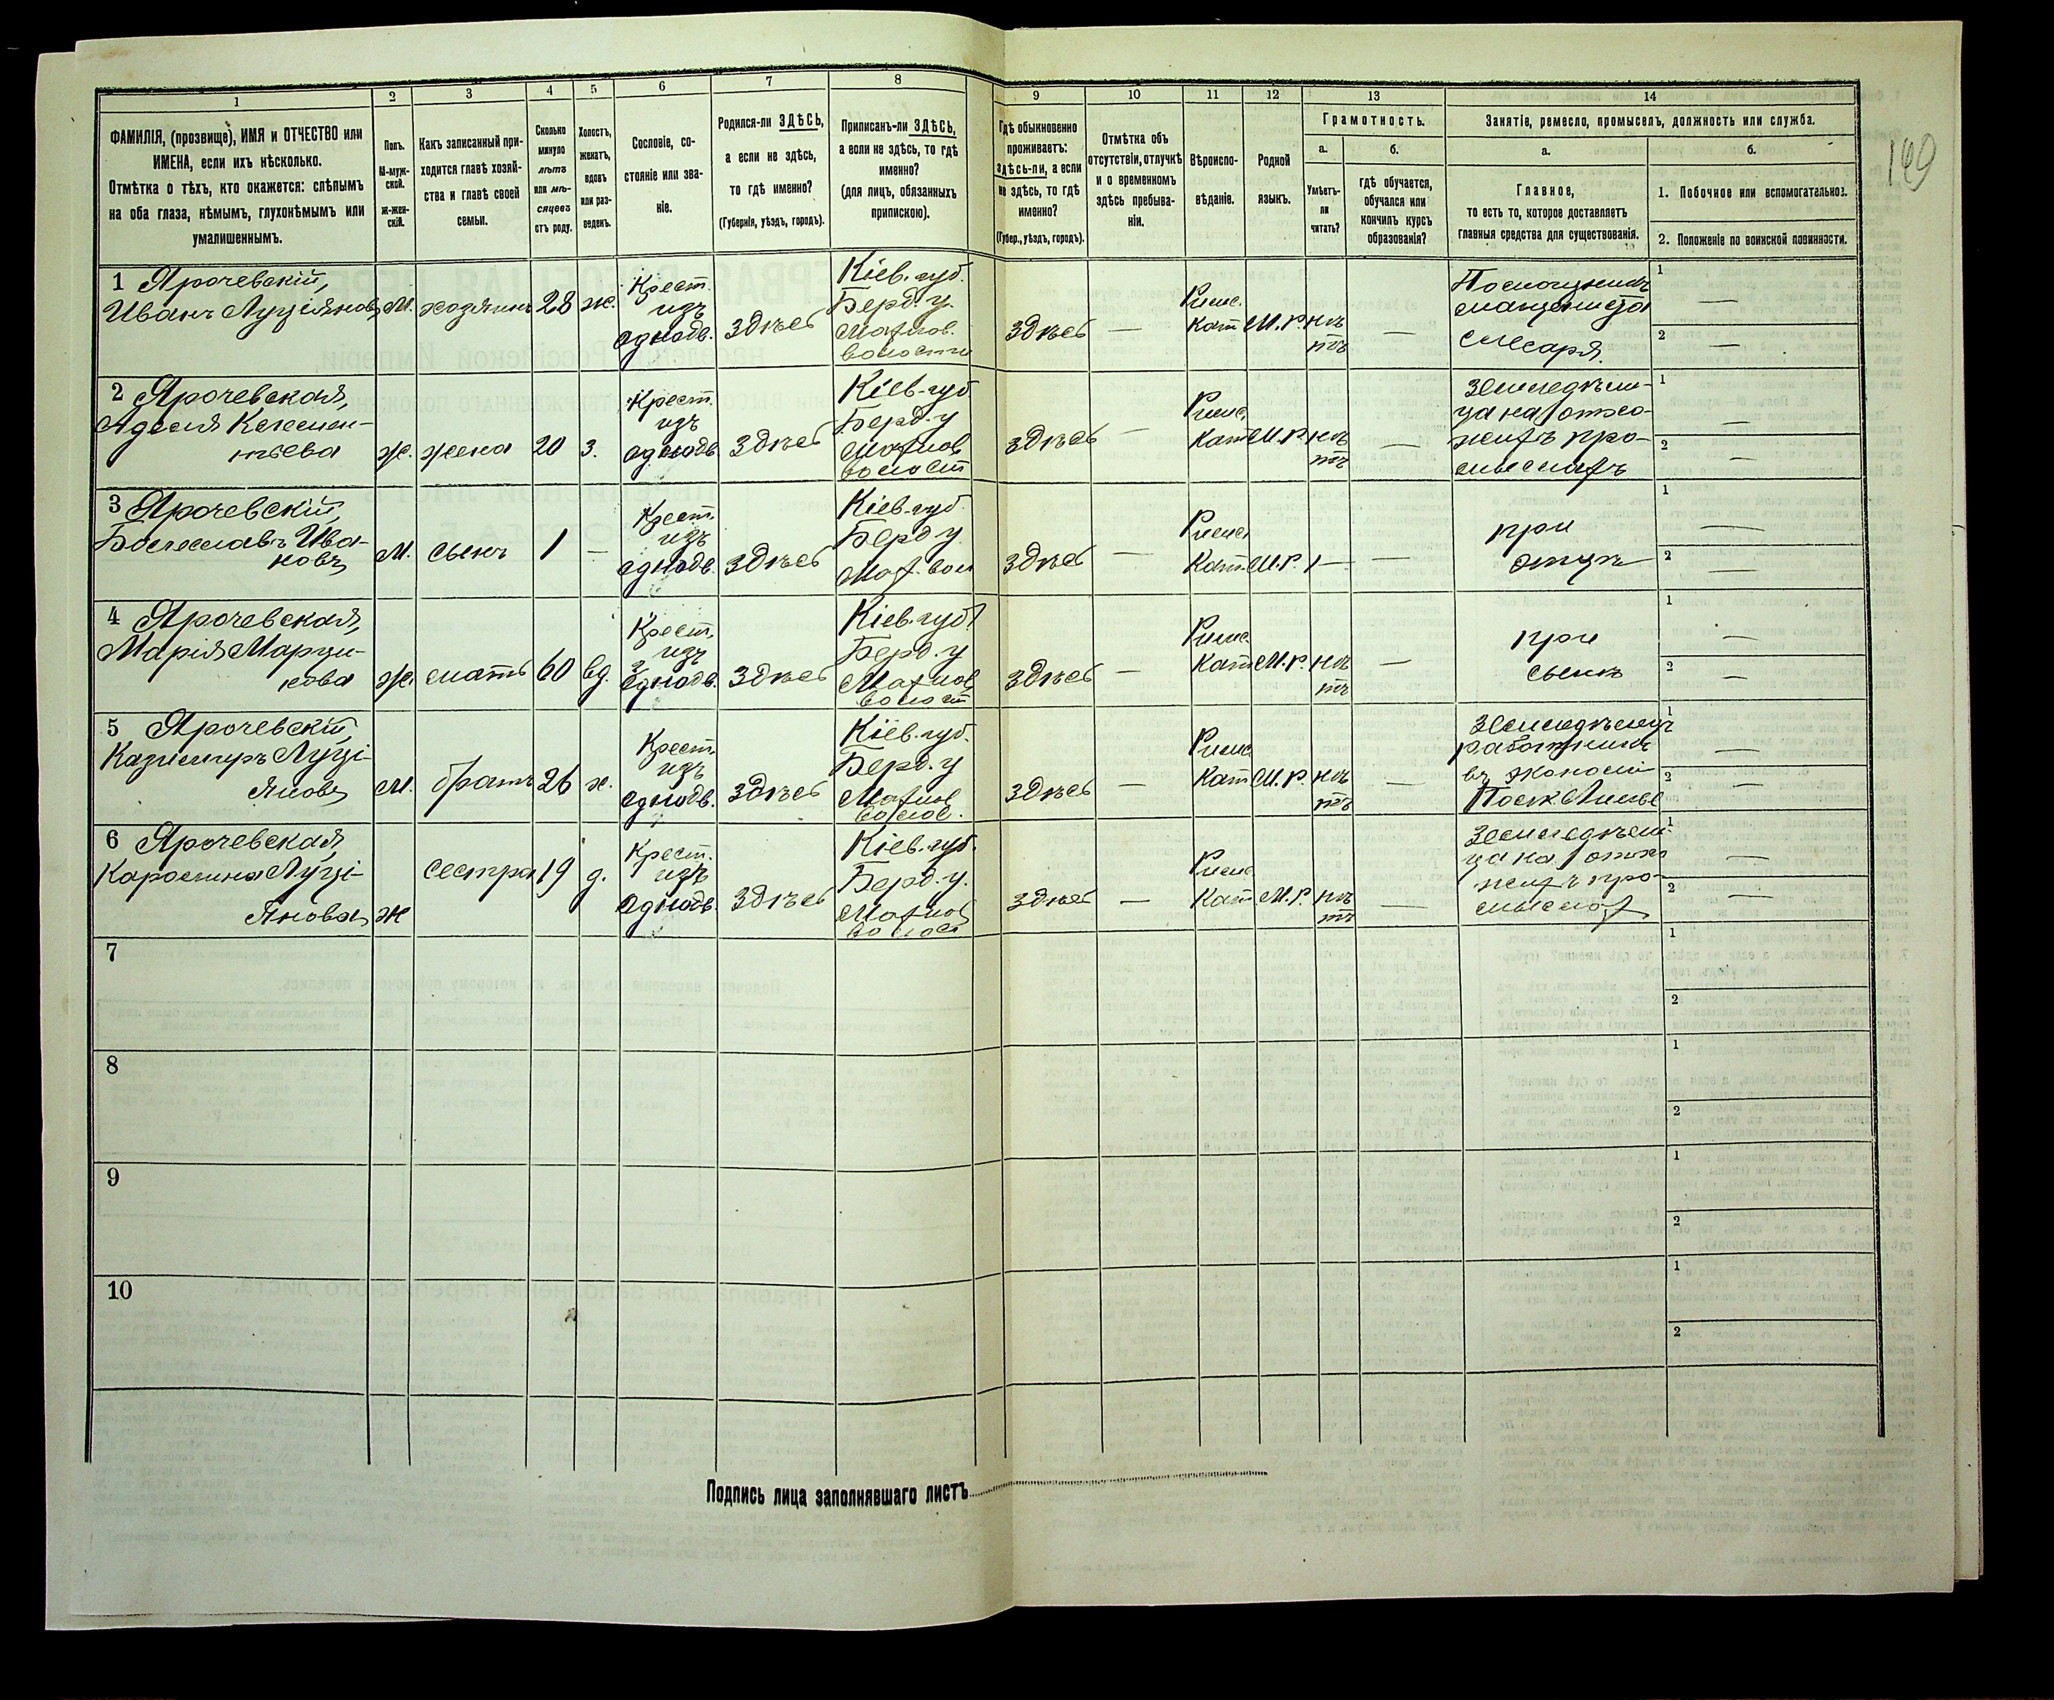 149
1 2 3 4 5 6 7 8 9 10 11 12 13 14
ФАМИЛІЯ, (прозвище), ИМЯ и ОТЧЕСТВО или
ИМЕНА, если ихъ нѣсколько.
Отмѣтка о тѣхъ, кто окажется: слѣпымъ
на оба глаза, нѣмымъ, глухонѣмымъ или
умалишеннымъ.
Полъ.
М-муж-
ской.
Ж-жен-
скій.
Какъ записанный при-
ходится главѣ хозяй-
ства и главѣ своей
семьи.
Сколько
минуло
лѣтъ
или мѣ-
сяцевъ
отъ роду.
Холостъ,
женатъ,
вдовъ
или раз-
веденъ.
Сословіе, со-
стояніе или зва-
ніе.
Родился-ли ЗДѢСЬ,
а если не здѣсь,
то гдѣ именно?
(Губернія, уѣздъ, городъ).
Приписанъ-ли ЗДѢСЬ,
а если не здѣсь, то гдѣ
именно?
(для лицъ, обязанныхъ
припискою).
Гдѣ обыкновенно
проживаетъ:
здѣсь-ли, а если
не здѣсь, то гдѣ
именно?
(Губер., уѣздъ, городъ).
Отмѣтка объ
отсутствіи, отлучкѣ
и о временномъ
здѣсь пребыва-
ніи.
Вѣроиспо-
вѣданіе.
Родной
языкъ.
Грамотность.
а.
Умѣетъ-
ли
читать?
б.
гдѣ обучается,
обучался или
кончилъ курсъ
образованія?
Занятіе, ремесло, промыселъ, должность или служба.
а.
Главное,
то есть то, которое доставляетъ
главныя средства для существованія.
б.
1. Побочное или вспомогательное.
2. Положеніе по воинской повинности.
1 Ярочевскій,
Иванъ Луціяновъ
М. хозяинъ 28 ж.
Крест.
изъ
однодв.
здѣсь
Кіев. губ.
Берд. у.
Махнов.
волости
здѣсь —
Римс.
Кат М.Р.
нѣ
тъ
—
слесаря.
1 —
2 —
2 Ярочевская,
Аделя Клемен-
тьева
Ж. жена 20 з.
Крест.
изъ
однодв.
здѣсь
Кіев. губ.
Берд. у
Махнов
волост
здѣсь —
Римс.
Кат М.Р.
нѣ
тъ
—
земледѣли-
ца на отхо-
жихъ про-
мыслахъ
1 —
2 —
3 Ярочевскій,
Болеславъ Ива-
новъ
М. сынъ 1 —
Крест.
изъ
однодв.
здѣсь
Кіев. губ.
Берд. у
Мах. вол
здѣсь —
Римс.
Кат. М.Р. — —
при
отцѣ
1 —
2 —
4 Ярочевская,
Марія Марци-
нова
Ж. мать 60 вд.
Крест.
изъ
однодв.
здѣсь
Кіев. губ.
Берд. у
Махнов
волост
здѣсь —
Римс.
Кат М.Р.
нѣ
тъ
—
при
сынѣ
1 —
2 —
5 Ярочевскій,
Казимиръ Луці-
яновъ
М. братъ 26 х.
Крест.
изъ
однодв.
здѣсь
Кіев. губ.
Берд. у
Махнов
волос.
здѣсь —
Римс.
Кат М.Р.
нѣ
тъ
—
работникъ
въ экономі
1 —
2 —
6 Ярочевская
Каролина Луці-
янова
Ж сестра 19 д.
Крест.
изъ
однодв.
здѣсь
Кіев. губ.
Берд. у.
Махнов
волост
здѣсь —
Римс
Кат М.Р.
нѣ
тъ
—
земледѣли-
ца на отхо
жихъ про-
мыслах
1 —
2 —
7
1
2
8
1
2
9
1
2
10
1
2
Подпись лица заполнявшаго листъ